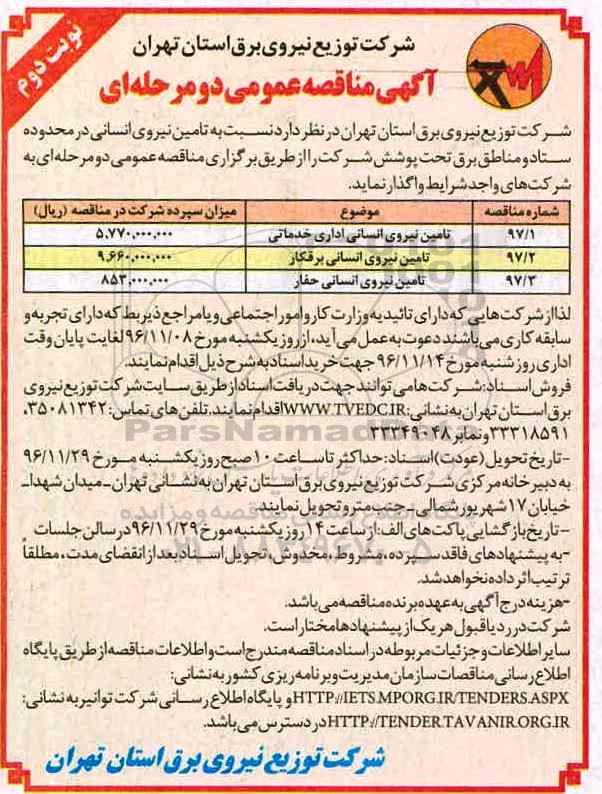 نوبت دوم
شرکت توزیع نیروی برق استان تهران
آگهی مناقصه عمومی دو مرحله‌ای
شرکت توزیع نیروی برق استان تهران در نظر دارد نسبت به تامین نیروی انسانی در محدوده
ستاد و مناطق برق تحت پوشش شرکت را از طریق برگزاری مناقصه عمومی دو مرحله‌ای به
شرکت‌های واجد شرایط واگذار نماید.
شماره مناقصه موضوع میزان سپرده شرکت در مناقصه (ریال)
۹۷/۱ تامین نیروی انسانی اداری خدماتی ۵،۷۷۰،۰۰۰،۰۰۰
۹۷/۲ تامین نیروی انسانی برقکار ۹،۶۶۰،۰۰۰،۰۰۰
۹۷/۳ تامین نیروی انسانی حفار ۸۵۳،۰۰۰،۰۰۰
لذا از شرکت‌هایی که دارای تائیدیه وزارت کار و امور اجتماعی و یا مراجع ذیربط که دارای تجربه و
سابقه کاری می‌باشند دعوت به عمل می‌آید، از روز یکشنبه مورخ ۹۶/۱۱/۰۸ لغایت پایان وقت
اداری روز شنبه مورخ ۹۶/۱۱/۱۴ جهت خرید اسناد به شرح ذیل اقدام نمایند.
فروش اسناد: شرکت‌ها می‌توانند جهت دریافت اسناد از طریق سایت شرکت توزیع نیروی
برق استان تهران به نشانی: WWW.TVEDC.IR اقدام نمایند. تلفن‌های تماس: ۳۵۰۸۱۳۴۲،
۳۳۳۱۸۵۹۱ و نمابر ۳۳۳۴۹۰۴۸
ParsNamadData
-تاریخ تحویل (عودت) اسناد: حداکثر تا ساعت ۱۰ صبح روز یکشنبه مورخ ۹۶/۱۱/۲۹
به دبیرخانه مرکزی شرکت توزیع نیروی برق استان تهران به نشانی تهران - میدان شهدا -
خیابان ۱۷ شهریور شمالی - جنب مترو تحویل نمایند.
-تاریخ بازگشایی پاکت‌های الف: از ساعت ۱۴ روز یکشنبه مورخ ۹۶/۱۱/۲۹ در سالن جلسات
-به پیشنهادهای فاقد سپرده، مشروط، مخدوش، تحویل اسناد بعد از انقضای مدت، مطلقاً
ترتیب اثر داده نخواهد شد.
-هزینه درج آگهی به عهده برنده مناقصه می‌باشد.
شرکت در رد یا قبول هر یک از پیشنهادها مختار است.
سایر اطلاعات و جزئیات مربوطه در اسناد مناقصه مندرج است و اطلاعات مناقصه از طریق پایگاه
اطلاع رسانی مناقصات سازمان مدیریت و برنامه ریزی کشور به نشانی:
HTTP://IETS.MPORG.IR/TENDERS.ASPX و پایگاه اطلاع رسانی شرکت توانیر به نشانی:
HTTP://TENDER.TAVANIR.ORG.IR در دسترس می‌باشد.
شرکت توزیع نیروی برق استان تهران